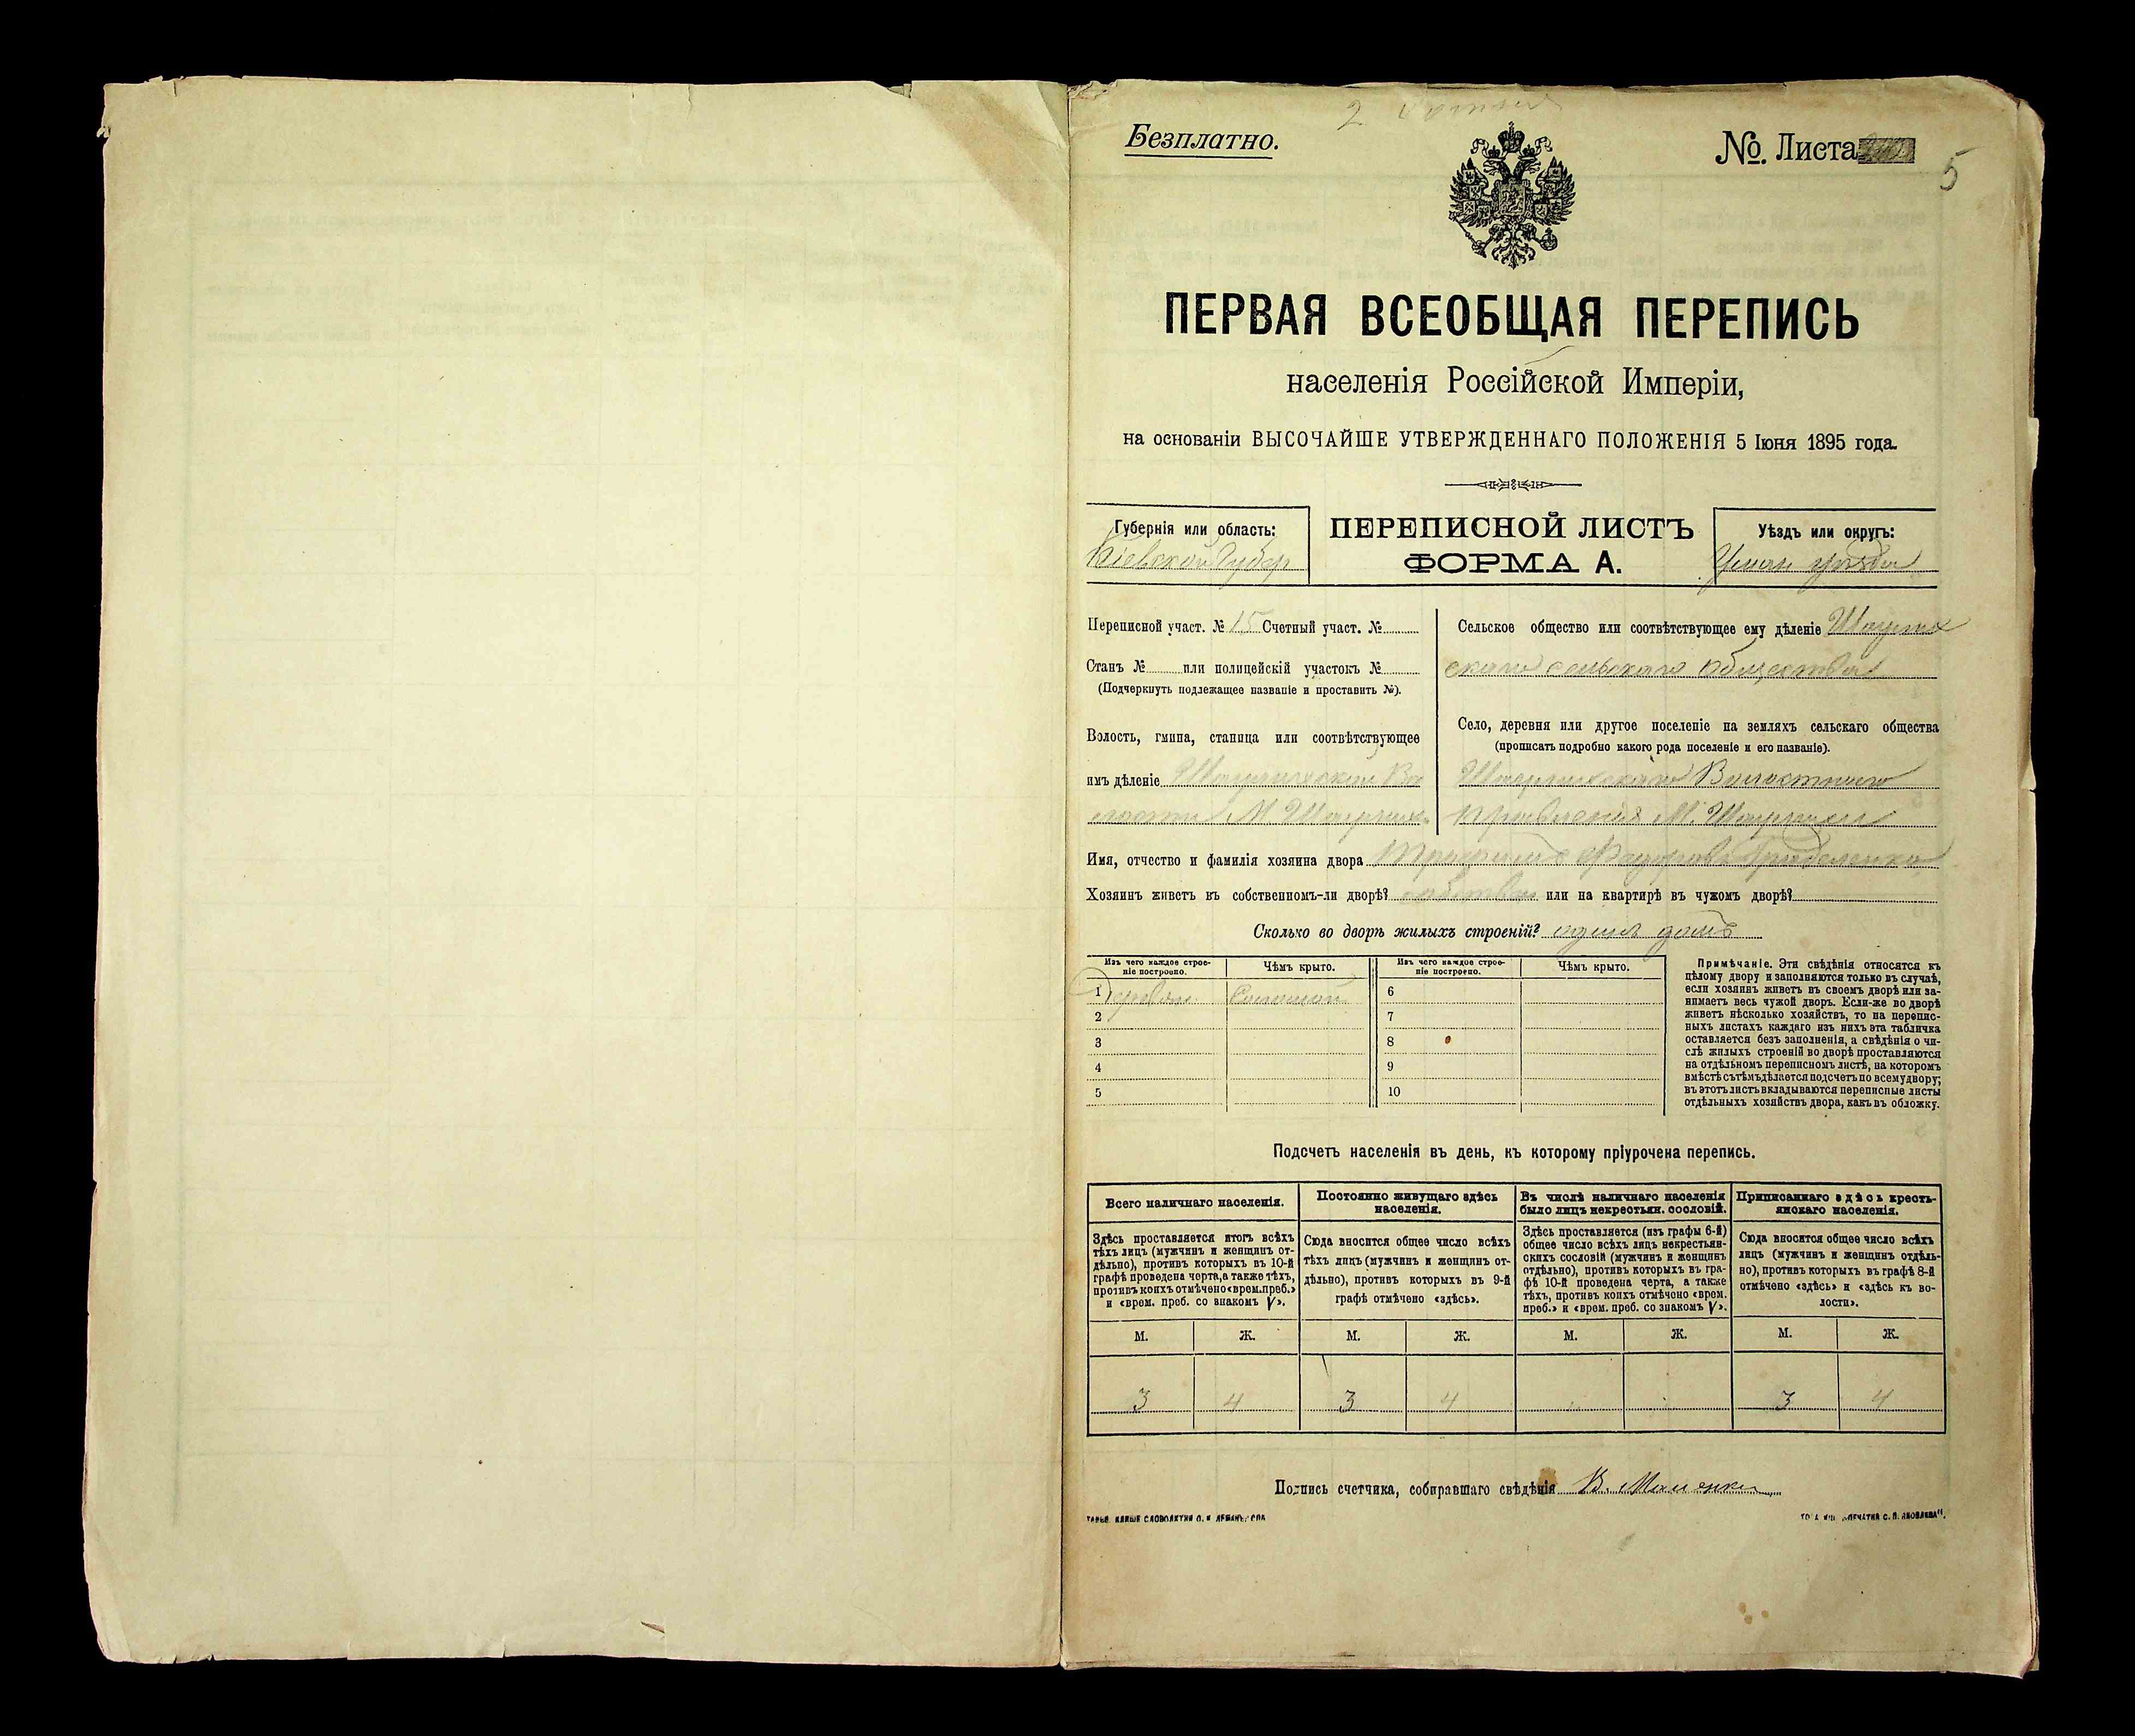 2
Безплатно.
№. Листа
5
ПЕРВАЯ ВСЕОБЩАЯ ПЕРЕПИСЬ
населенія Россійской Имперіи,
на основаніи ВЫСОЧАЙШЕ УТВЕРЖДЕННАГО ПОЛОЖЕНІЯ 5 Іюня 1895 года.
Губернія или область:
Кіевской Губер
ПЕРЕПИСНОЙ ЛИСТЪ
ФОРМА А.
Уѣздъ или округъ:
Уман уѣзда
Переписной участ. № 15 Счетный участ. №
Станъ № или полицейскій участокъ №
(Подчеркнуть подлежащее названіе и проставить №).
Волость, гмина, станица или соотвѣтствующее
имъ дѣленіе
Сельское общество или соотвѣтствующее ему дѣленіе
скаго сельскаго общества
Село, деревня или другое поселеніе на земляхъ сельскаго общества
(прописать подробно какого рода поселеніе и его названіе).
Волостного
правленія М.
Имя, отчество и фамилія хозяина двора
Хозяинъ живетъ въ собственномъ-ли дворѣ? или на квартирѣ въ чужомъ дворѣ?
Сколько во дворѣ жилыхъ строеній? один домъ
Изъ чего каждое строе-
ніе построено.
Чѣмъ крыто.
1
2
3
4
5
Изъ чего каждое строе-
ніе построено.
Чѣмъ крыто.
6
7
8
9
10
Примѣчаніе. Эти свѣдѣнія относятся къ
цѣлому двору и заполняются только въ случаѣ,
если хозяинъ живетъ въ своемъ дворѣ или за-
нимаетъ весь чужой дворъ. Если-же во дворѣ
живетъ нѣсколько хозяйствъ, то на перепис-
ныхъ листахъ каждаго изъ нихъ эта табличка
оставляется безъ заполненія, а свѣдѣнія о чи-
слѣ жилыхъ строеній во дворѣ проставляются
на отдѣльномъ переписномъ листѣ, на которомъ
вмѣстѣ съ тѣмъ дѣлается подсчетъ по всему двору;
въ этотъ листъ вкладываются переписные листы
отдѣльныхъ хозяйствъ двора, какъ въ обложку.
Подсчетъ населенія въ день, къ которому пріурочена перепись.
Всего наличнаго населенія.
Здѣсь проставляется итогъ всѣхъ
тѣхъ лицъ (мужчинъ и женщинъ от-
дѣльно), противъ которыхъ въ 10-й
графѣ проведена черта, а также тѣхъ,
противъ коихъ отмѣчено «врем. преб.»
и «врем. преб. со знакомъ V».
М. Ж.
3 4
Постоянно живущаго здѣсь
населенія.
Сюда вносится общее число всѣхъ
тѣхъ лицъ (мужчинъ и женщинъ от-
дѣльно), противъ которыхъ въ 9-й
графѣ отмѣчено «здѣсь».
М. Ж.
3 4
Въ числѣ наличнаго населенія
было лицъ некрестьян. сословій.
Здѣсь проставляется (изъ графы 6-й)
общее число всѣхъ лицъ некрестьян-
скихъ сословій (мужчинъ и женщинъ
отдѣльно), противъ которыхъ въ гра-
фѣ 10-й проведена черта, а также
тѣхъ, противъ коихъ отмѣчено «врем.
преб.» и «врем. преб. со знакомъ V».
М. Ж.
Приписаннаго здѣсь кресть-
янскаго населенія.
Сюда вносится общее число всѣхъ
лицъ (мужчинъ и женщинъ отдѣль-
но), противъ которыхъ въ графѣ 8-й
отмѣчено «здѣсь» и «здѣсь къ во-
лости».
М. Ж.
3 4
Подпись счетчика, собиравшаго свѣдѣнія В.